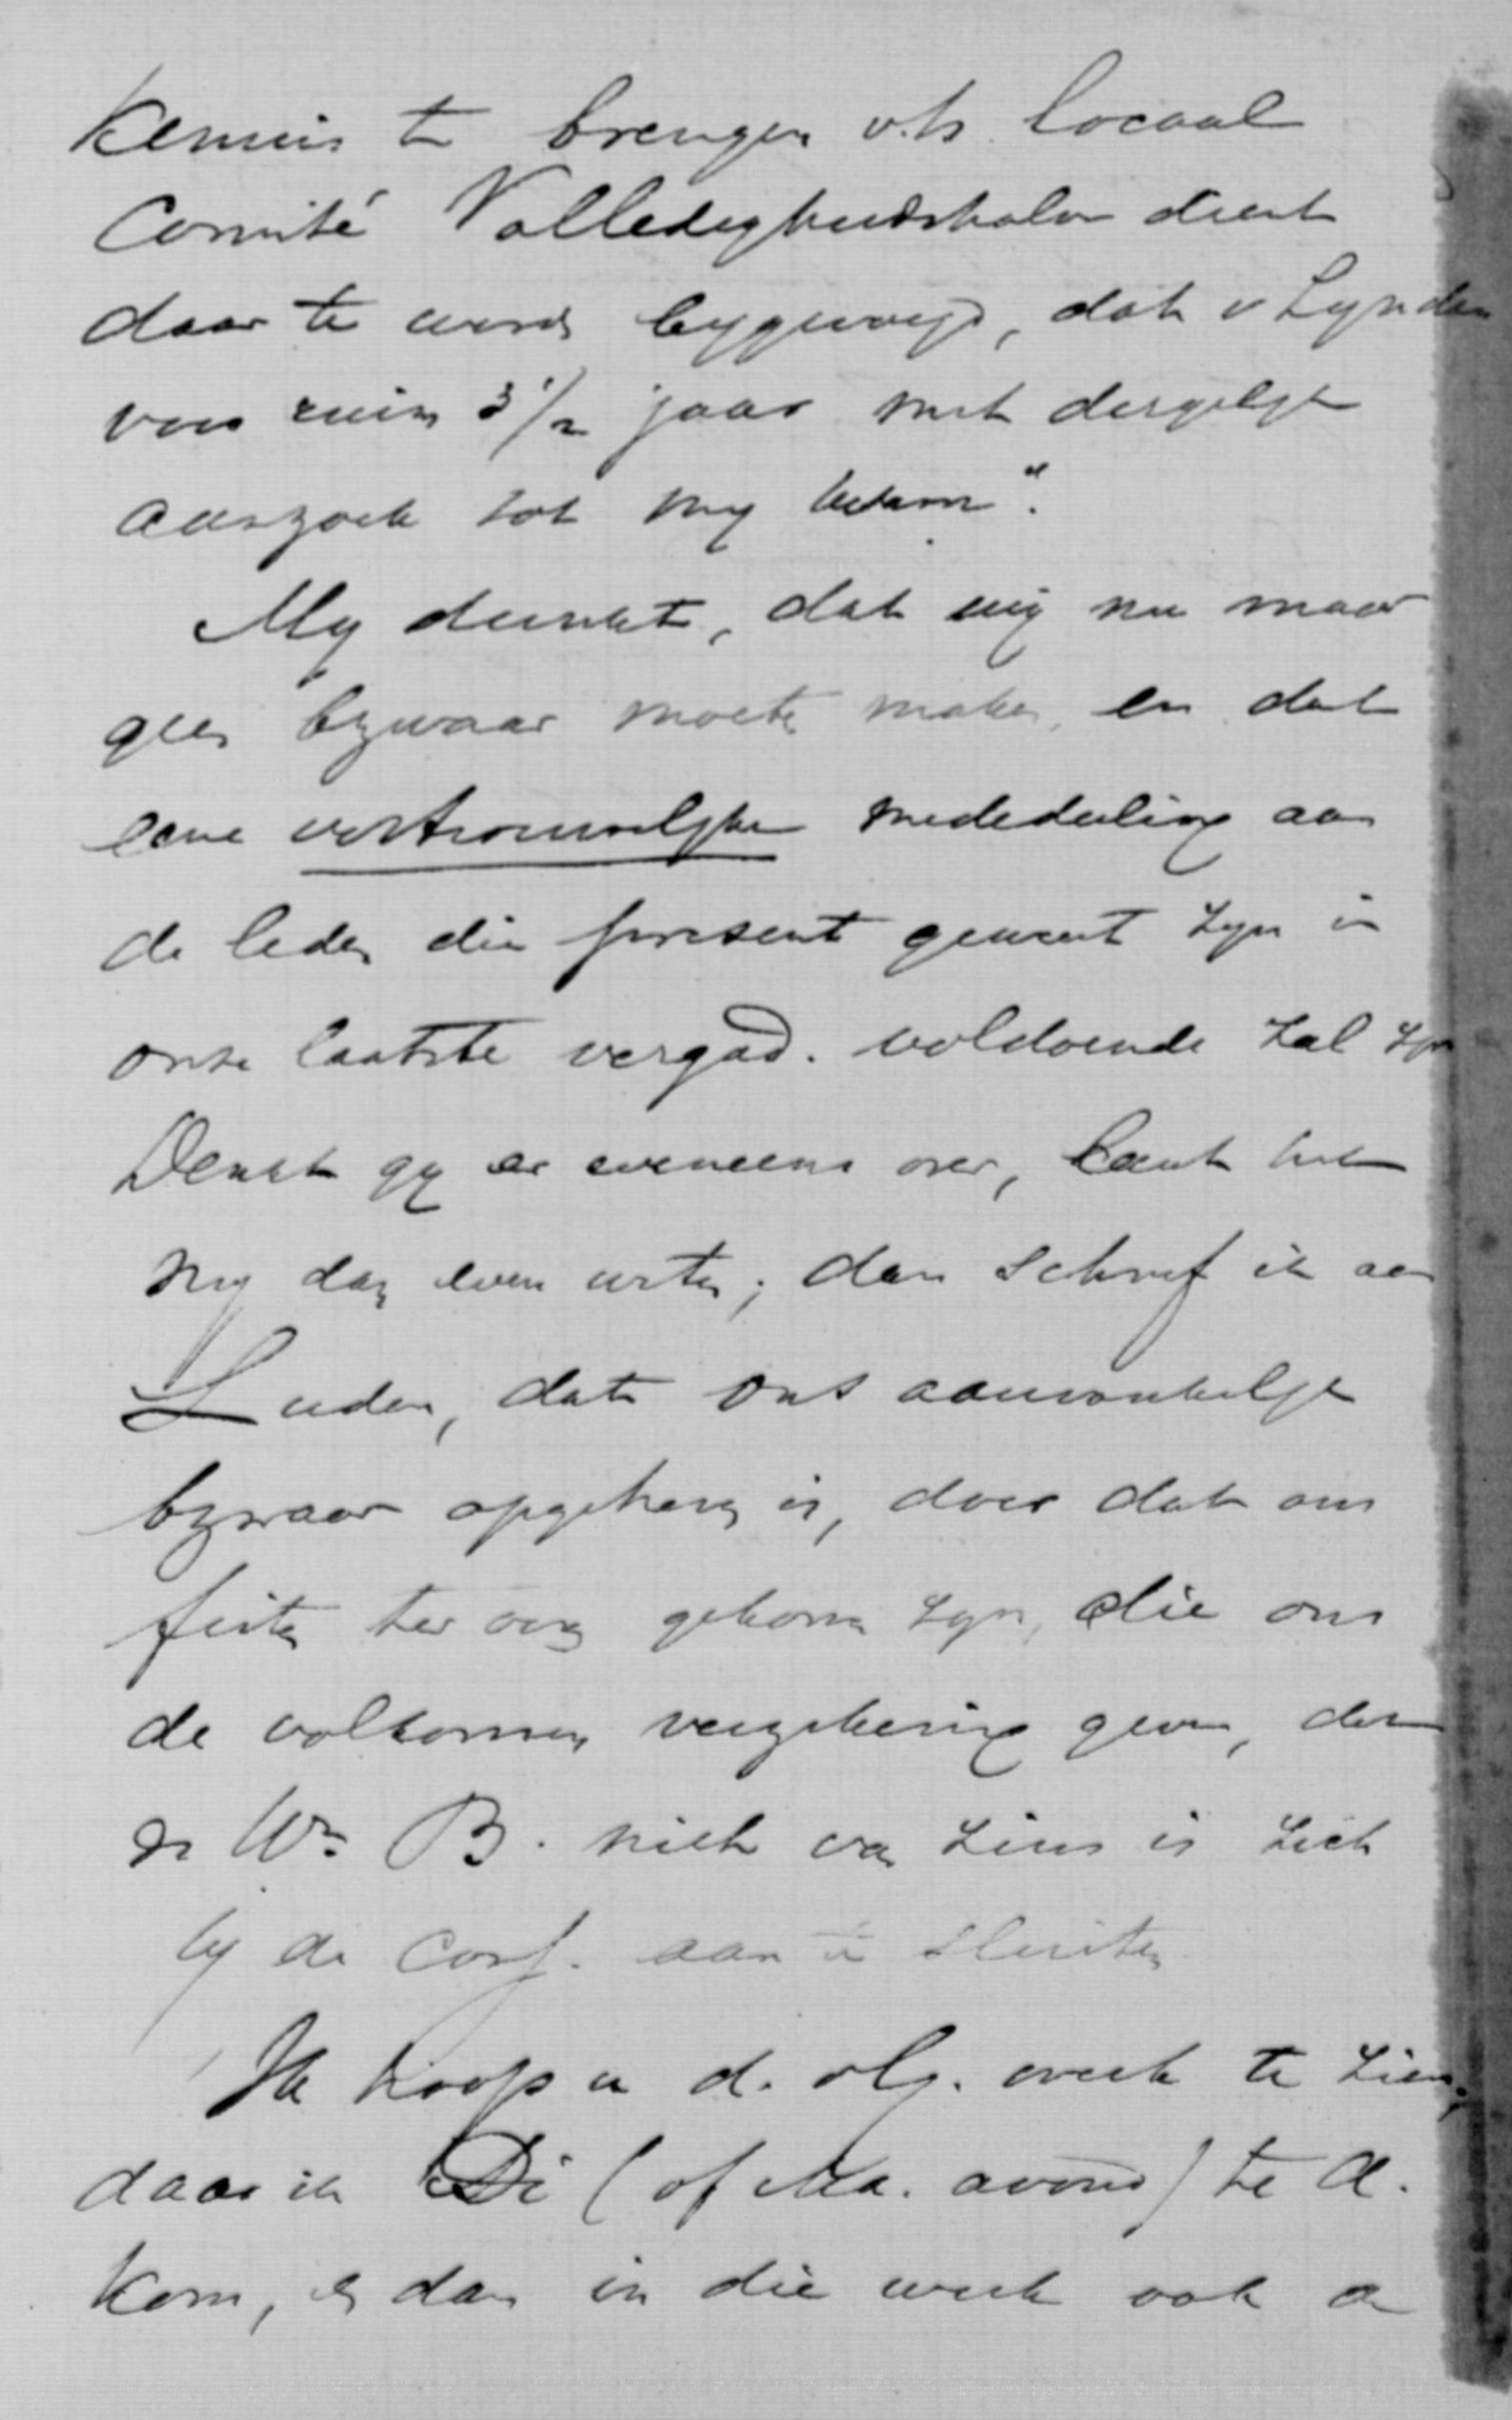 Kennis te brengen v.h. locaal
Comité Volledigheidshalve dient
daar te word bygevoegd, dat v Lynden
voor ruim 3 1/2 jaar met dergelyk
aanzoek tot my kwam".
My dunkt, dat wij nu maar
geen bezwaar moeten maken, en dat
eene vertrouwelyke mededeeling aan
de leden die present geweest zyn in
onze laatste vergad. voldoende zal zyn
Denkt gy er eveneens over, laat het
my dan even weten; dan schryf ik aan
Luden, dat ons aanvankelyk
bezwaar opgeheven is, door dat ons
feiten ter oore gekomen zyn, die ons
de volkomen verzekering geven, dat
de Wn B. niet van zins is zich
by de conf. aan te sluiten
Ik hoop u d. vlg. week te zien,
daar ik Di (of Ma. avond) te A.
kom, en dan in die week ook